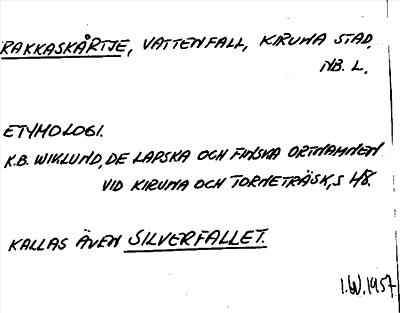 RAKKASKÅRTJE, VATTENFALL, KIRUNA STAD,
NB. L.
ETYMOLOGI.
K.B. WIKLUND, DE LAPSKA OCH FINSKA ORTNAMNEN
VID KIRUNA OCH TORNETRÄSK, S 48.
KALLAS ÄVEN SILVERFALLET.
I.W. 1957